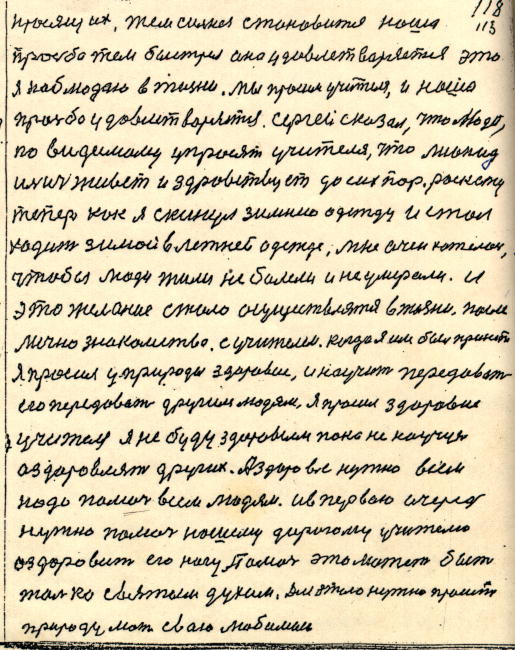 118
просящих, тем сильнее становится наша 113
просьба тем быстрея она удовлетваряется это
я наблюдаю в жизни. мы просим учителя, и наша
просьба удовлетваряется. Сергей сказал, что люди,
по видимому упросят учителя, что Леонид
ильич живет и здравствует до сих пор. раскажу
тепер как я скинул зимнию одежду и стал
ходит зимой в летней одежде, мне очен хотелос,
чтобы люди жили не болели и не умерали. и
это желание стало осуществлятся в жизни. после
лично знакомство. с учителем. когда я им был принят
я просил у природы здоровие, и научит передават
его передават другим людям. я просил здоровие
учител я не буду здоровым пока не научус
аздоровлят других. Аздоровие нужно всем
надо помоч всем людям. и в первою очеред
нужно помоч нашему дорогому учителю
оздоровит его ногу. Помоч это может быт
толко святым духам. для этого нужно просит
природу мат сваю любимаи